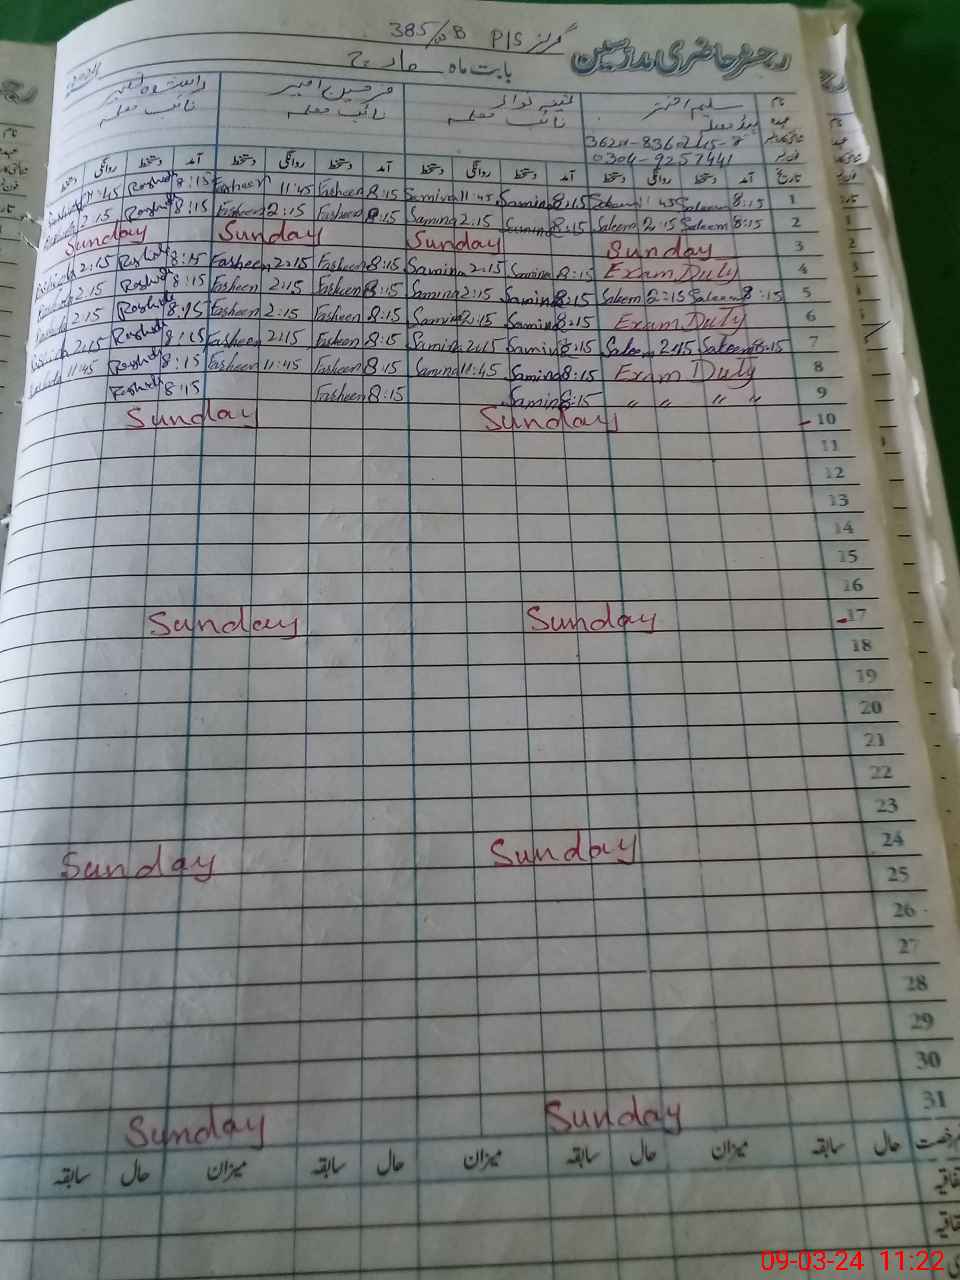 گرلز P/S 385/WB
رجسٹر حاضری مدرسین بابت ماہ مارچ
نام سلیم اختر ثمینہ نواز فرحین امیر
عہدہ ہیڈ معلمہ نائب معلمہ نائب معلمہ نائب معلمہ
0304-9257441
تاریخ آمد دستخط روانگی دستخط آمد دستخط روانگی دستخط آمد دستخط روانگی دستخط آمد دستخط روانگی دستخط
Rashida 11:45 Rashida 8:15 Fasheen 11:45 Fasheen 8:15 Samina 11:45 Samina 8:15 Saleem 11:45 Saleem 8:15 1
Rashida 2:15 Rashida 8:15 Fasheen 2:15 Fasheen 8:15 Samina 2:15 Samina 8:15 Saleem 2:15 Saleem 8:15 2
Sunday Sunday Sunday Sunday 3
Rashida 2:15 Rashida 8:15 Fasheen 2:15 Fasheen 8:15 Samina 2:15 Samina 8:15 Exam Duty 4
Rashida 2:15 Rashida 8:15 Fasheen 2:15 Fasheen 8:15 Samina 2:15 Samina 8:15 Saleem 2:15 Saleem 8:15 5
Rashida 2:15 Rashida 8:15 Fasheen 2:15 Fasheen 8:15 Samina 2:15 Samina 8:15 Exam Duty 6
Rashida 2:15 Rashida 8:15 Fasheen 2:15 Fasheen 8:15 Samina 2:15 Samina 8:15 Saleem 2:15 Saleem 8:15 7
Rashida 11:45 Rashida 8:15 Fasheen 11:45 Fasheen 8:15 Samina 11:45 Samina 8:15 Exam Duty 8
Rashida 8:15 Fasheen 8:15 Samina 8:15 " " " " 9
Sunday Sunday 10
11
12
13
14
15
16
Sunday Sunday 17
18
19
20
21
22
23
Sunday Sunday 24
25
26
27
28
29
30
Sunday Sunday 31
رخصت حال سابقہ میزان حال سابقہ میزان حال سابقہ میزان حال سابقہ
09-03-24 11:22